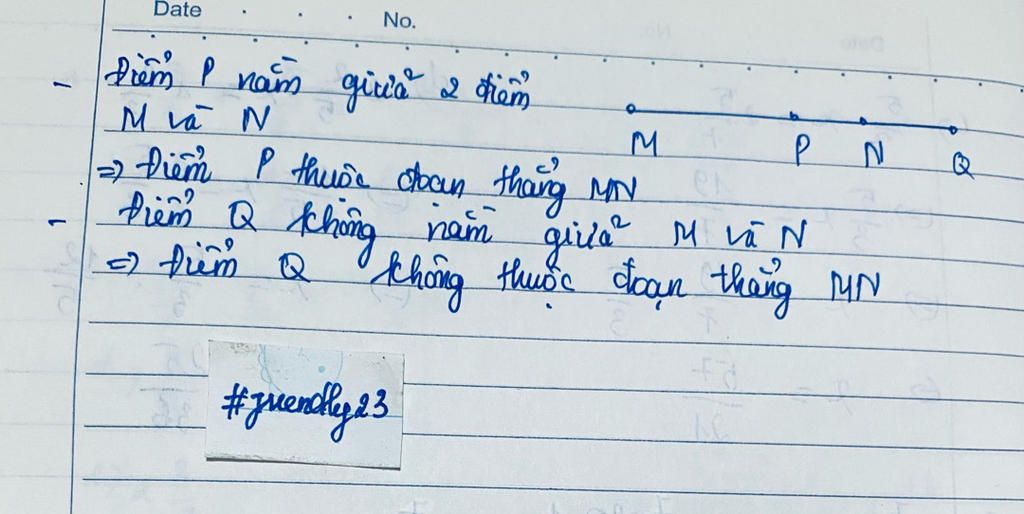 Date . . . No.
- Điểm P nằm giữa 2 điểm
M và N
M P N Q
=> Điểm P thuộc đoạn thẳng MN
- Điểm Q không nằm giữa M và N
=> Điểm Q không thuộc đoạn thẳng MN